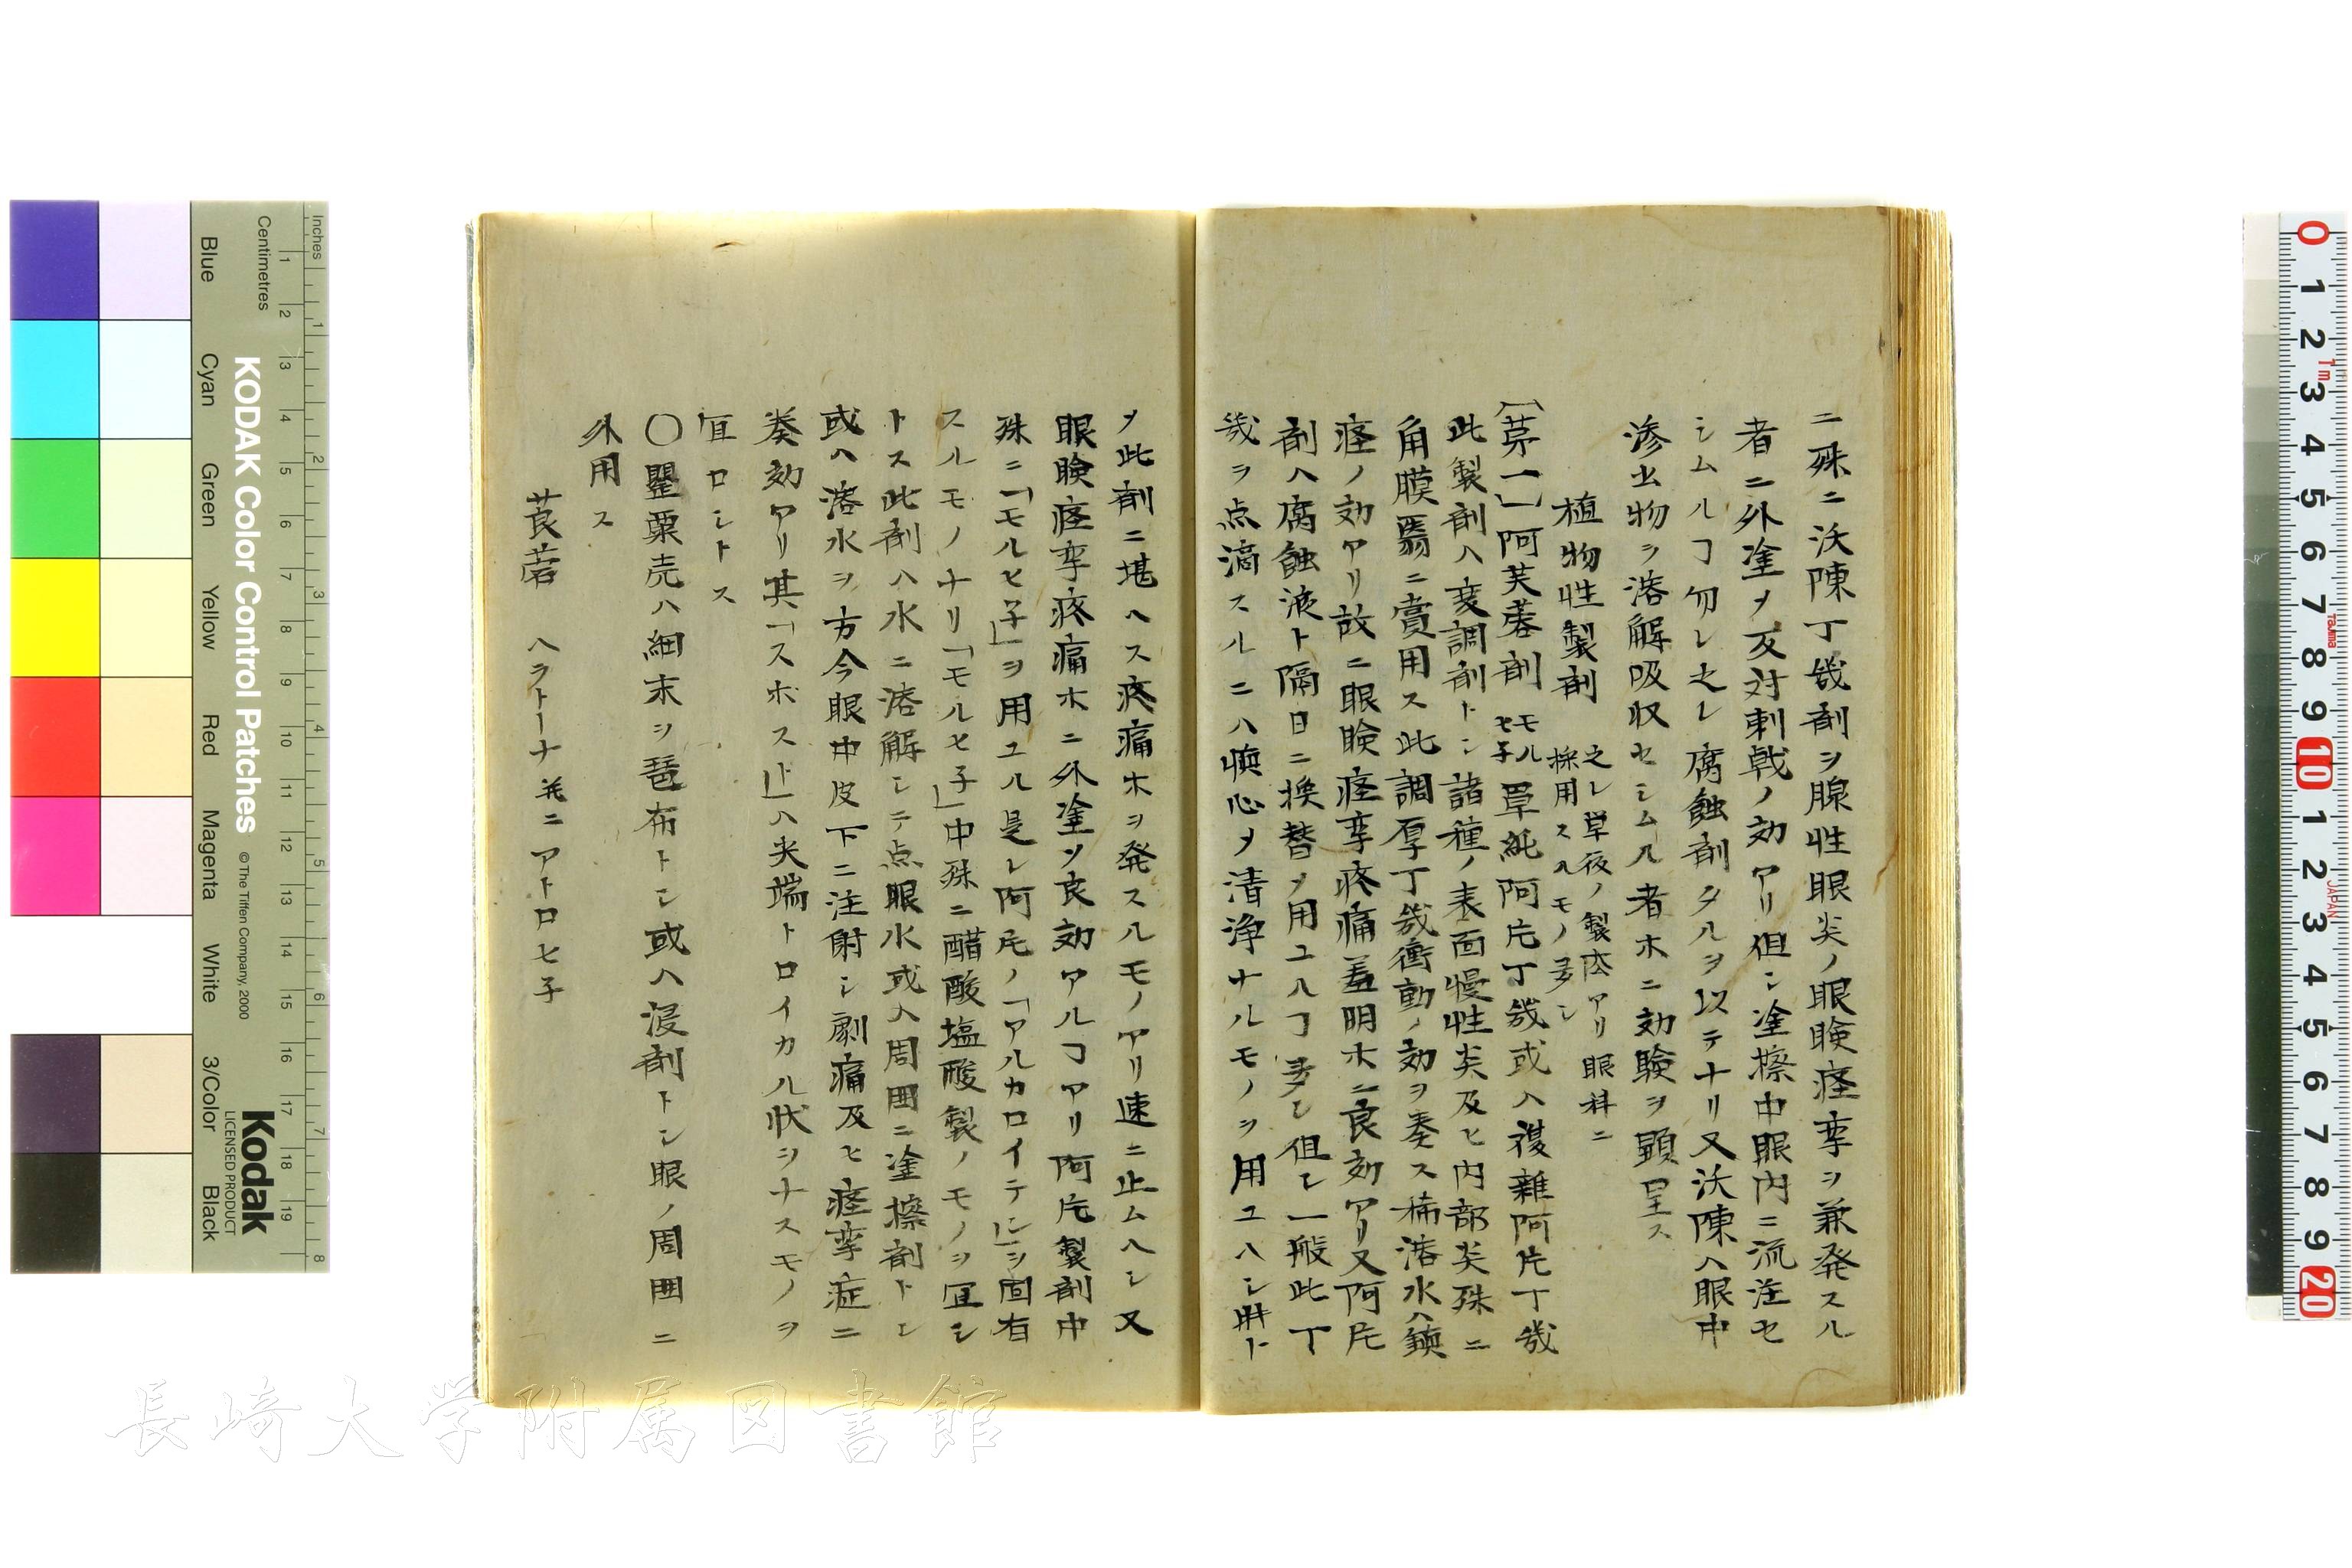 ニ殊ニ沃陳丁幾剤ヲ腺性眼炎ノ眼瞼痙挛ヲ兼発スル
者ニ外塗ソ反対刺戟ノ効アリ但シ塗擦中眼内ニ流注セ
シムルヿ勿レ之レ腐蝕剤タルヲ以テナリ又沃陳ハ眼中
滲出物ヲ溶解吸収セシムル者ホニ効験ヲ顕呈ス
植物性製剤 之レ草夜ノ製店アリ眼科ニ
採用スルモノ多シ
〔苐一〕阿芙蓉剤 モル
ヒ子 単純阿片丁幾或ハ複雑阿片丁幾
此製剤ハ変調剤トシ諸種ノ表面慢性炎及ヒ内部炎殊ニ
角膜翳ニ賞用ス此調厚丁幾衝動ノ効ヲ奏ス稀溶水ハ鎮
痙ノ効アリ故ニ眼瞼痙挛疼痛羞明ホニ良効アリ又阿片
剤ハ腐蝕液ト隔日ニ換替ソ用ユルヿ多シ但シ一般此丁
幾ヲ点滴スルニハ慎心ソ清浄ナルモノヲ用ユヘシ時ト
ソ此剤ニ堪ヘス疼痛ホヲ発スルモノアリ速ニ止ムヘシ又
眼瞼痙挛疼痛ホニ外塗ソ良効アルヿアリ阿片製剤中
殊ニ「モルヒ子」ヲ用ユル是レ阿片ノ「アルカロイテン」ヲ固有
スルモノナリ「モルヒ子」中殊ニ醋酸塩酸製ノモノヲ冝シ
トス此剤ハ水ニ溶解シテ点眼水或ハ周囲ニ塗擦剤トシ
或ハ溶水ヲ方今眼中皮下ニ注射シ劇痛及ヒ痙挛症ニ
奏効アリ其「スポスト」ハ尖端トロイカル状ヲナスモノヲ
冝ロシトス
〇罌粟売ハ細末ヲ琶布トシ或ハ浸剤トシ眼ノ周囲ニ
外用ス
莨菪 ヘラトーナ并ニアトロヒ子
KODAK Color Control Patches
©The Tiffen Company, 2000
Kodak
LICENSED PRODUCT
Inches
Centimetres
Blue
Cyan
Green
Yellow
Red
Magenta
White
3/Color
Black
長崎大学附属図書館